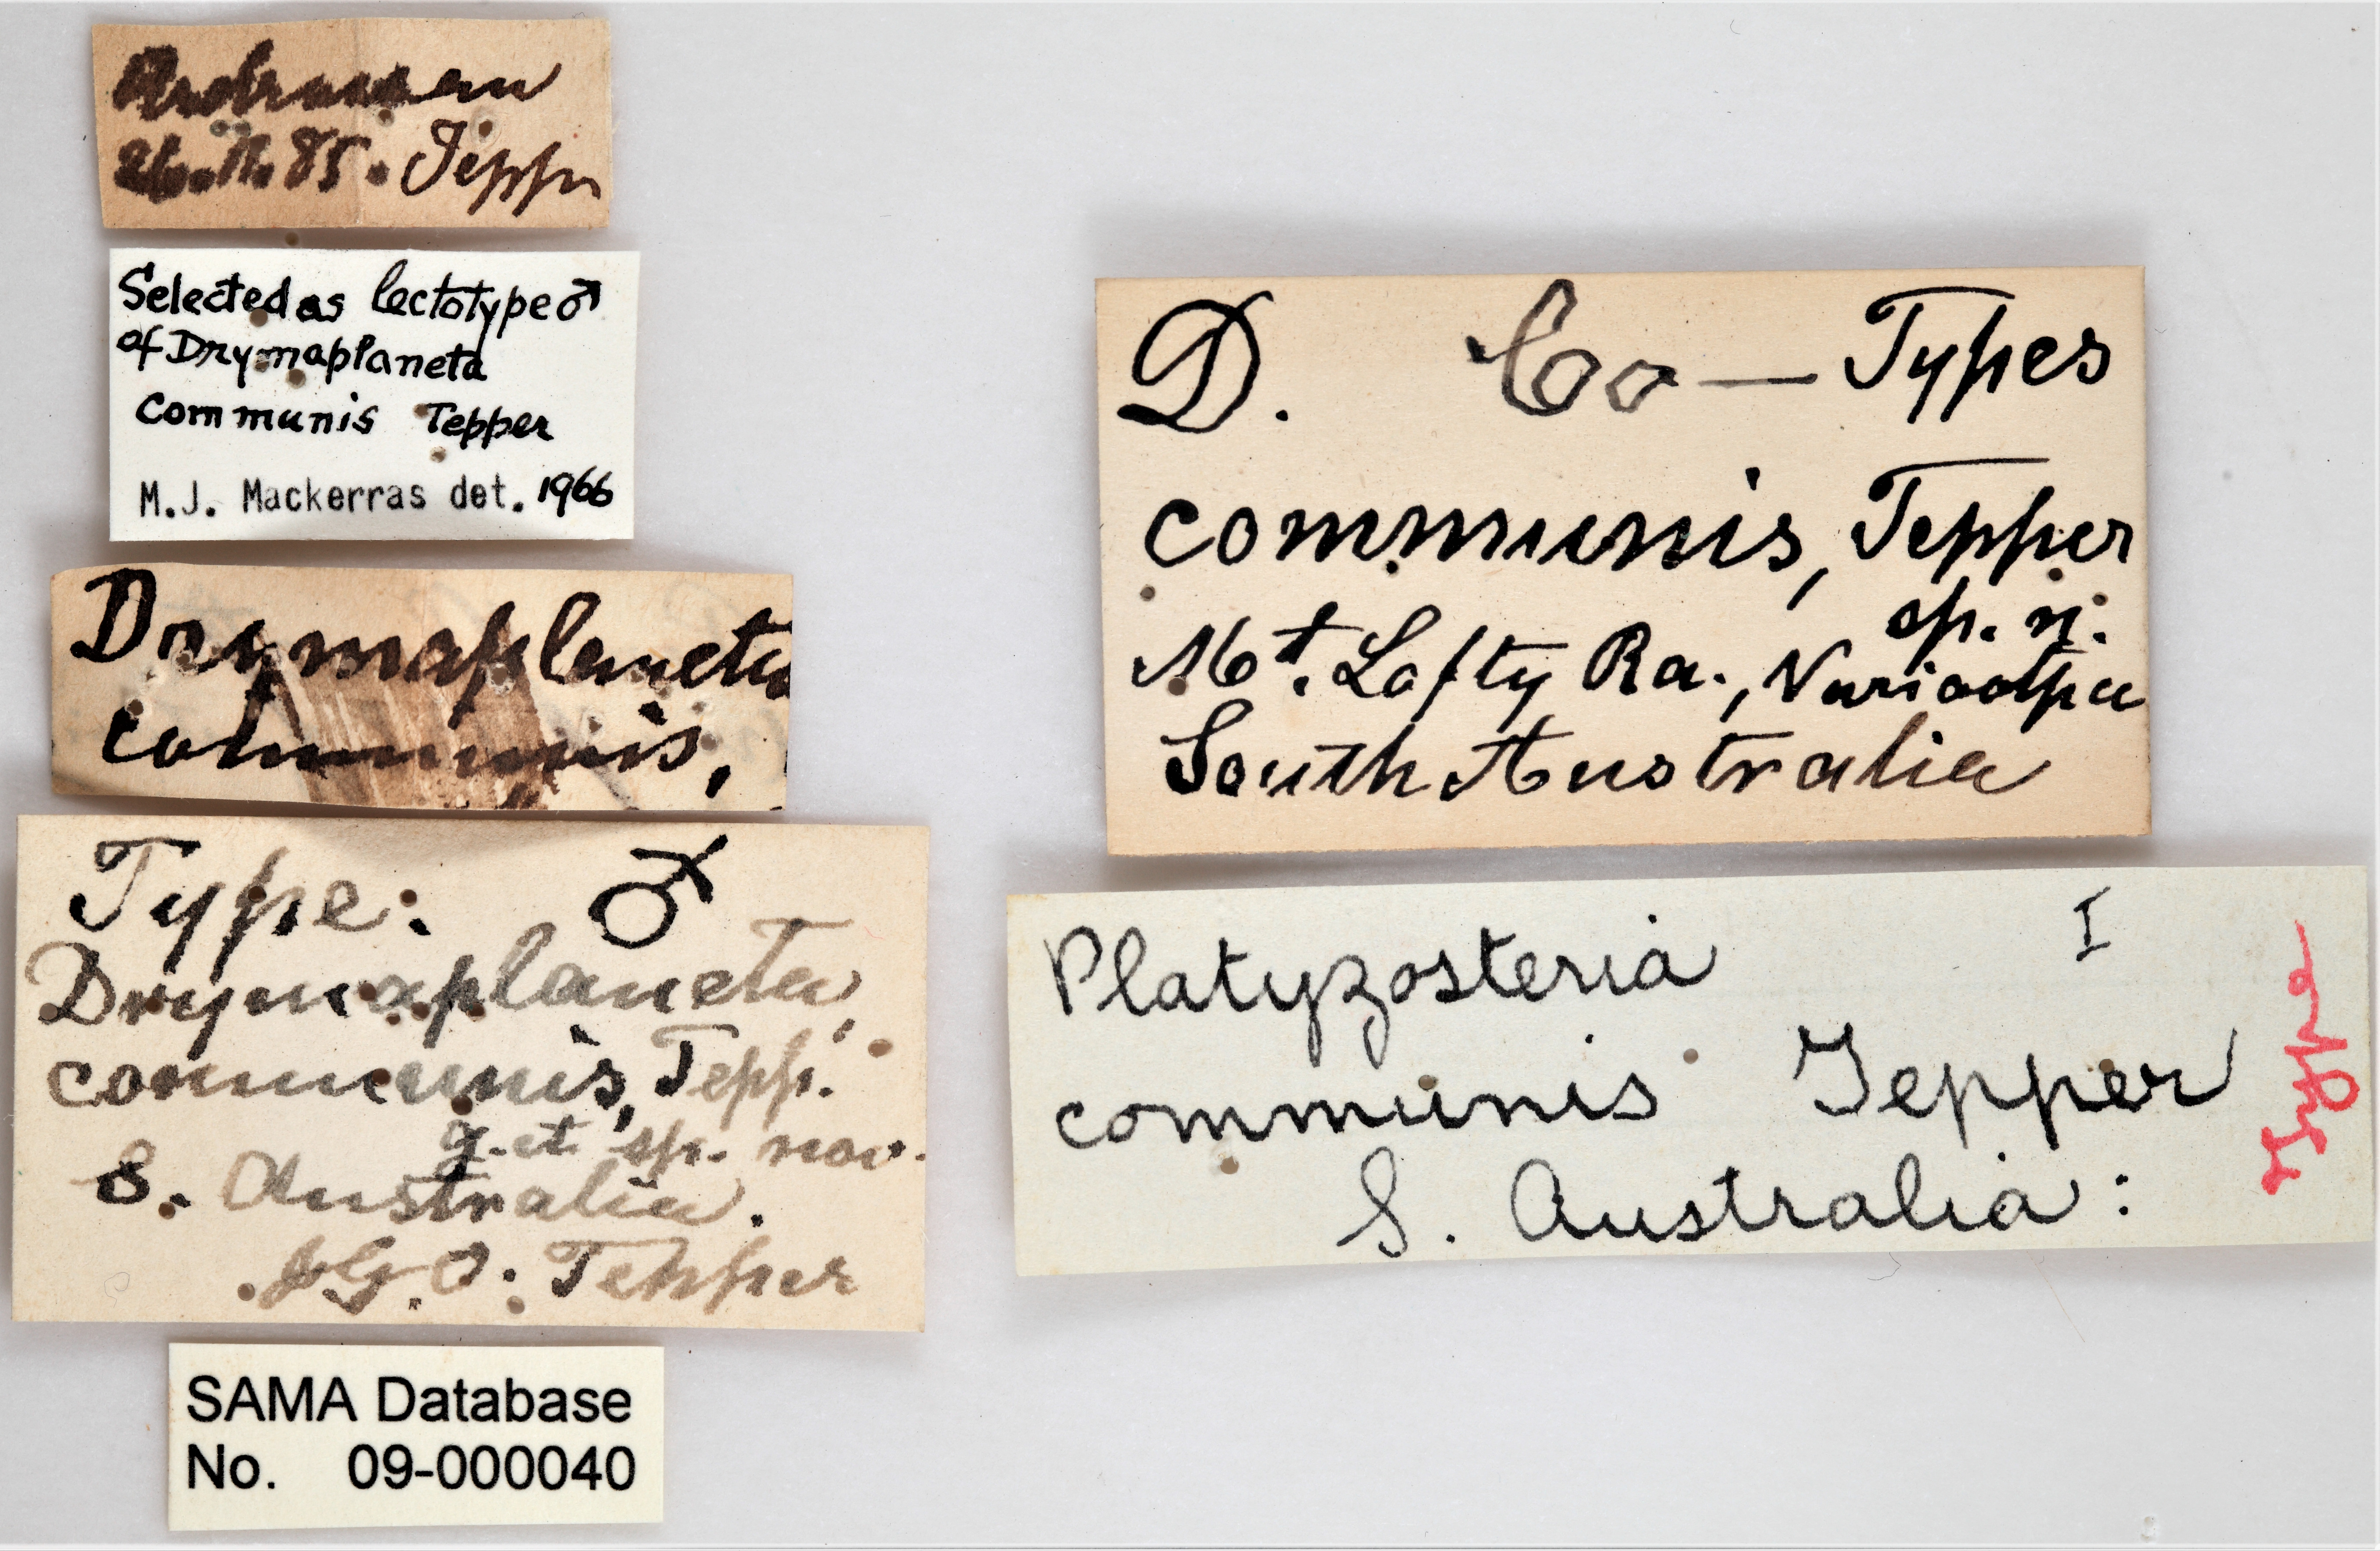 85. Tepp
Selected as lectotype ♂
of Drymaplaneta
communis Tepper
M.J. Mackerras det. 1966
Drymaplaneta
communis,
Type: ♂
Drymaplaneta,
communis, Tepp.
g. et sp. nov.
S. Australia.
J.G.O. Tepper
SAMA Database
No. 09-000040
D. Co-Types
communis, Tepper
sp. n.
Mt. Lofty Ra., Nuriootpa
South Australia
Platyzosteria I
communis Tepper
S. Australia:
Type